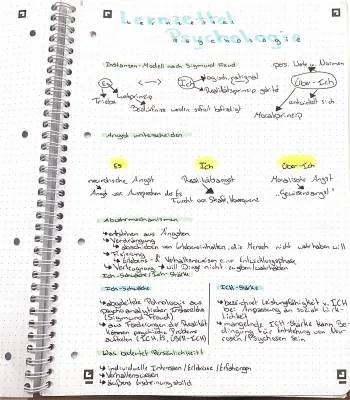 Lernzettel
Psychologie
Instanzen-Modell nach Sigmund Freud
pers. Werte u. Normen
Es <-> Ich logisch, rational Über-Ich
Realitätsprinzip
Triebe Lustprinzip entwickelt sich
Bedürfnisse werden sofort befriedigt Moralprinzip
Angst unterscheiden
Es Ich Über-Ich
neurotische Angst Realitätsangst Moralische Angst
Angst vor Ausbrechen des Es Furcht vor Strafe, Konsequenz "Gewissensangst"
Abwehrmechanismen
entstehen aus Ängsten
Verdrängung
abschieben von Erlebensinhalten, die Mensch nicht wahrhaben will
Fixierung
Erlebens- & Verhaltensweisen einer Entwicklungsphase
Verleugnung -> will Dinge nicht wahrhaben
Ich-Schwäche / Ich-Stärke
Ich-Schwäche
abgeleitete Pathologie aus psychoanalytischer
(Sigmund Freud)
aus Forderungen der Realität können psychische Probleme
(ICH, ES, ÜBER-ICH)
ICH-Stärke
bezeichnet Leistungsfähigkeit v. ICH
bei Anpassung an soziale Wirklichkeit
mangelnde ICH-Stärke kann Bedingung für Entstehung von Neurosen/Psychosen sein
Was bedeutet Persönlichkeit?
individuelle Interessen / Erlebnisse / Erfahrungen
Verhaltensweisen
äußeres Erscheinungsbild